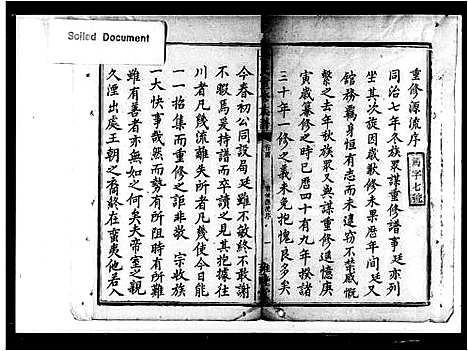 Soiled Document
重修源流序
萬字七號
同治七年冬族眾謀重修譜事廷亦列
坐其次旋因歲歉修未果歷年間廷又
館務羈身恒有志而未逮竊不禁感慨
繫之去年秋族眾又與謀重修遐憶庚
寅歲纂修之時已曆四十有九年揆諸
三十年一修之義未免抱愧良多矣
卷首
重修源流序
一
今春初公同設局廷雖不敏終不敢謝
不暇焉爰持譜而卒讀之見其抱據往
川者凡幾流離失所者凡幾使今日能
一一招集而重修之詎非敬宗收族
一大快事哉然而勢有所阻時有所難
雖有善者亦無如之何矣夫帝室之親
久湮出處王朝之裔終在蠻夷他若入